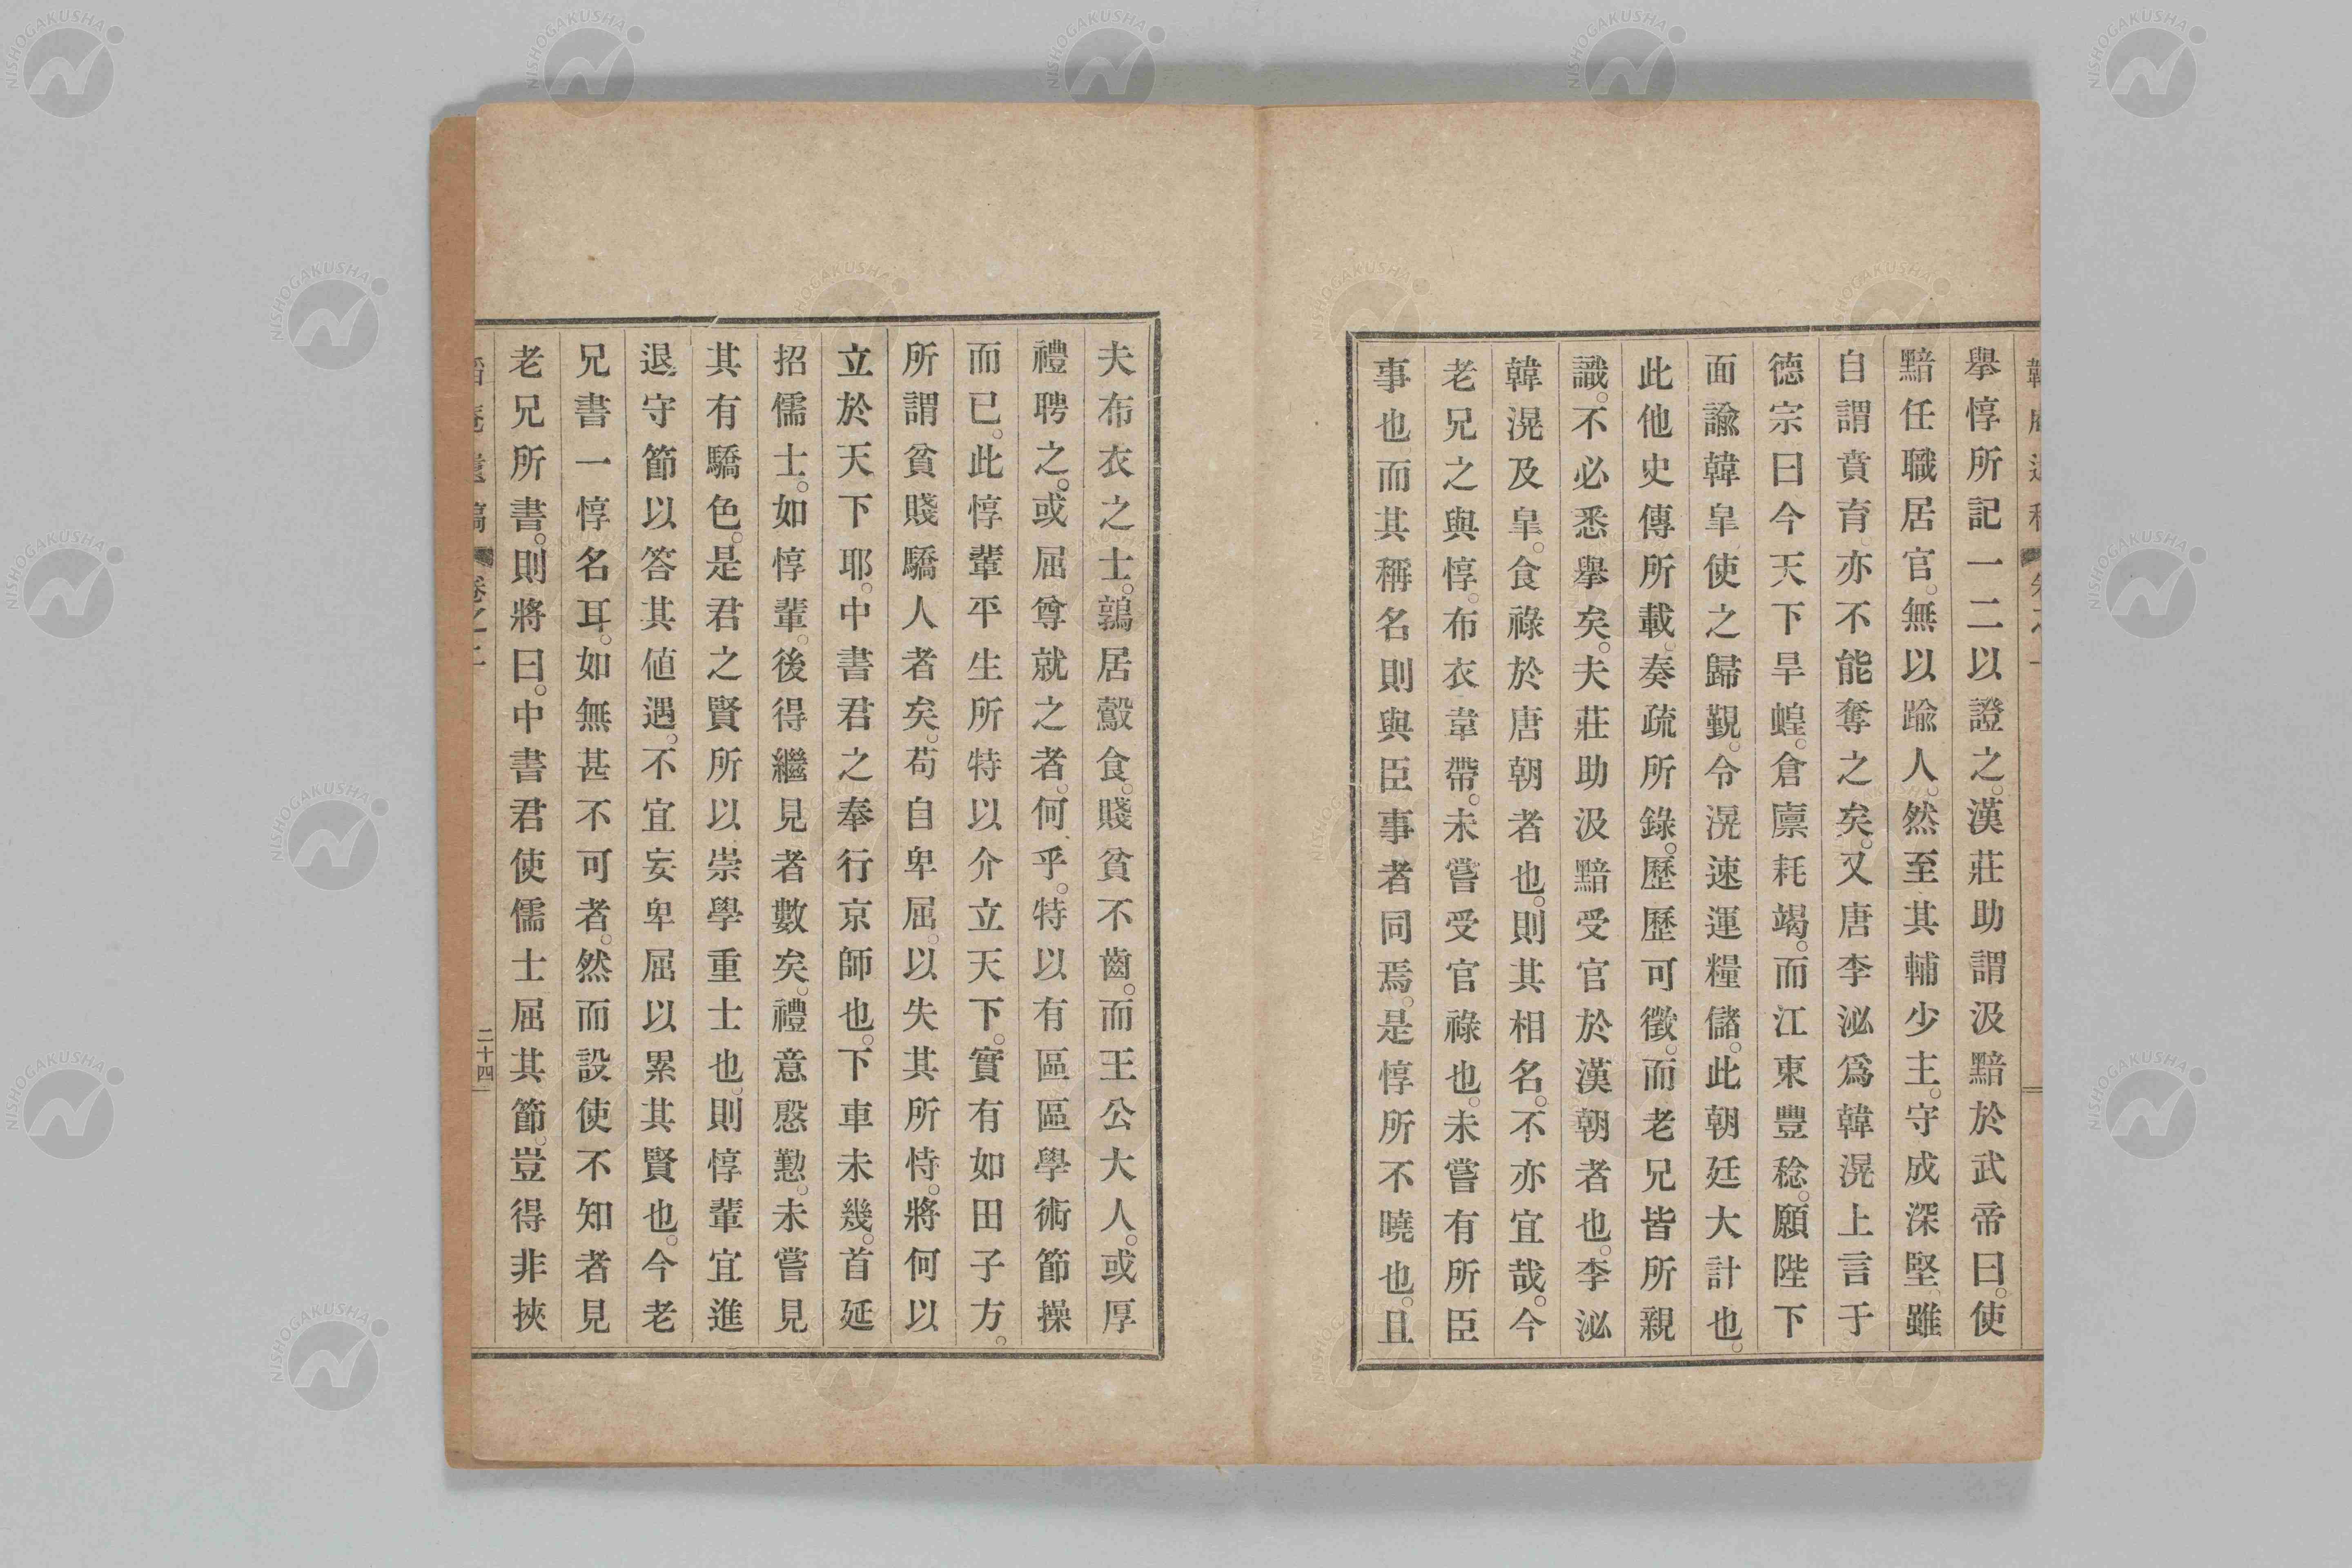 擧惇所記一二以證之。漢莊助謂汲黯於武帝曰。使
黯任職居官。無以踰人。然至其輔少主。守成深堅。雖
自謂賁育。亦不能奪之矣。又唐李泌爲韓滉上言于
德宗曰。今天下旱蝗。倉廩耗竭。而江東豐稔。願陛下
面諭韓皐。使之歸覲。令滉速運糧儲。此朝廷大計也。
此他史傳所載。奏疏所錄。歷歷可徵。而老兄皆所親
識。不必悉擧矣。夫莊助汲黯受官於漢朝者也。李泌
韓滉及皐。食祿於唐朝者也。則其相名。不亦宜哉。今
老兄之與惇。布衣韋帶。未嘗受官祿也。未嘗有所臣
事也。而其稱名則與臣事者同焉。是惇所不曉也。且
夫布衣之士。鶉居鷇食。賤貧不齒。而王公大人。或厚
禮聘之。或屈尊就之者。何乎。特以有區區學術節操
而已。此惇輩平生所特以介立天下。實有如田子方。
所謂貧賤驕人者矣。苟自卑屈。以失其所恃。將何以
立於天下耶。中書君之奉行京師也。下車未幾。首延
招儒士。如惇輩。後得繼見者數矣。禮意慇懃。未嘗見
其有驕色。是君之賢所以崇學重士也。則惇輩宜進
退守節以答其値遇。不宜妄卑屈以累其賢也。今老
兄書一惇名耳。如無甚不可者。然而設使不知者見
老兄所書。則將曰。中書君使儒士屈其節。豈得非挾
卷之二
二十四
NISHOGAKUSHA